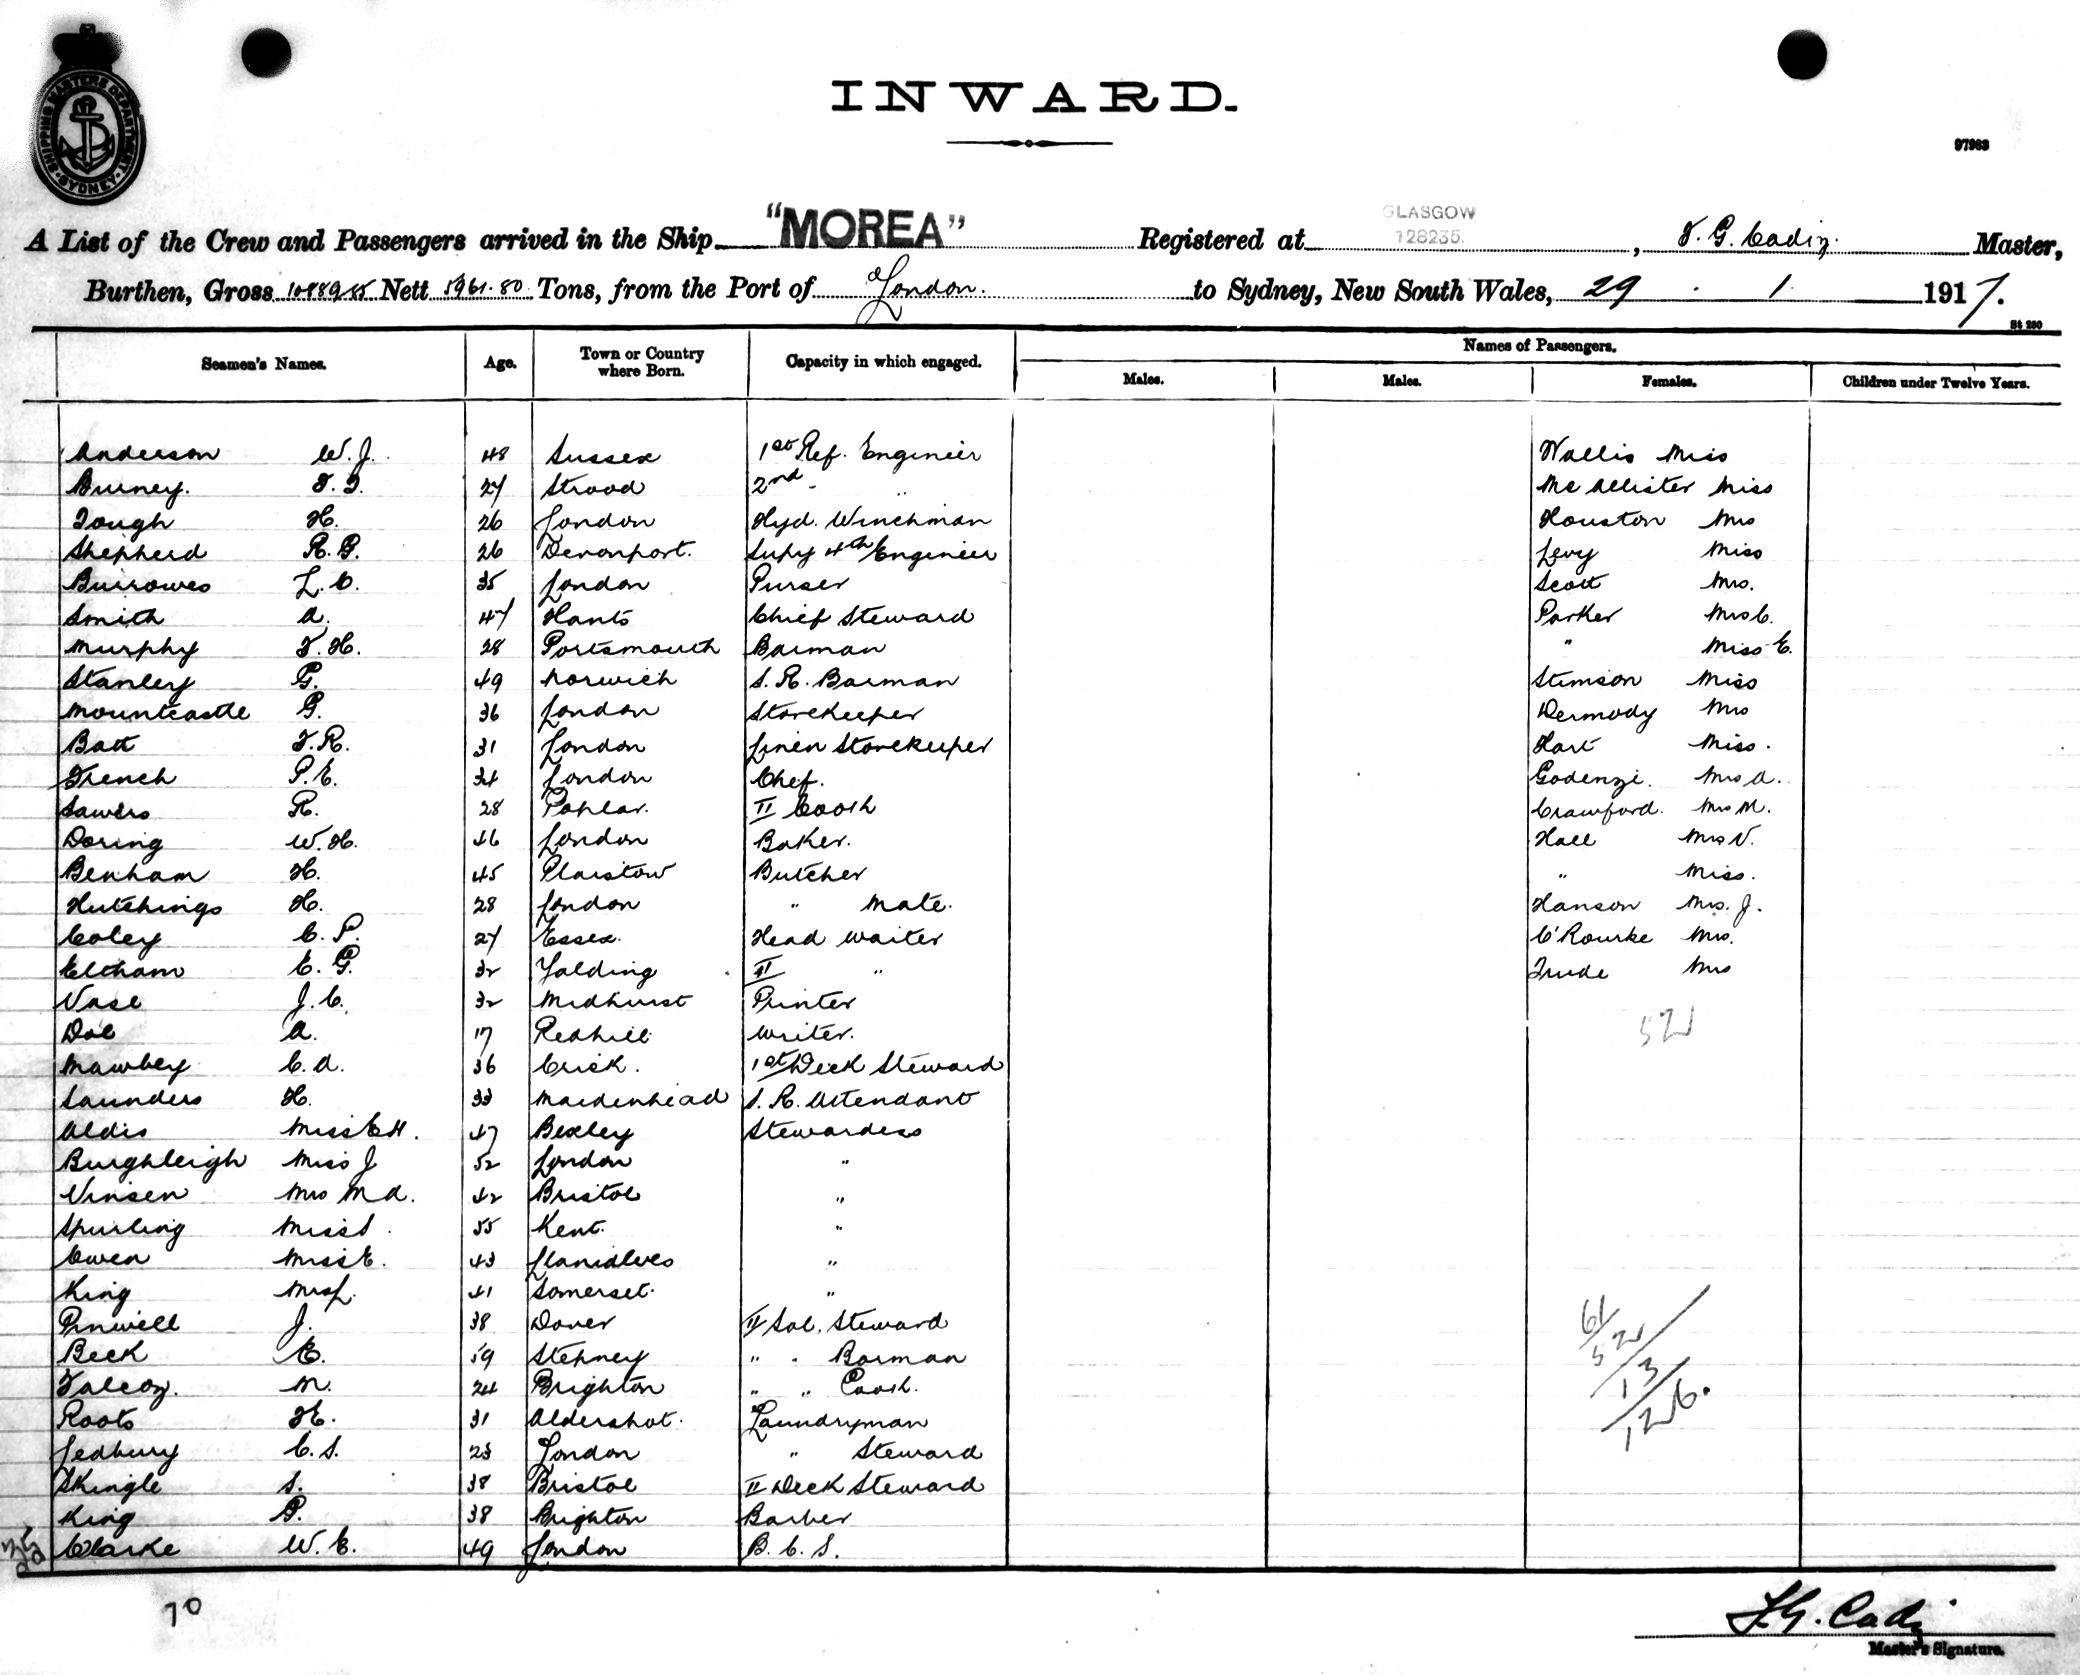 SHIPPING MASTERS DEPARTMENT SYDNEY
INWARD.
97983
A List of the Crew and Passengers arrived in the Ship "MOREA" Registered at GLASGOW 128235. , F. G. Cadiz. Master,
Burthen, Gross Nett 5961.80 Tons, from the Port of London. to Sydney, New South Wales, 29 . 1 1917.
St 250
Seamen's Names. Age. Town or Country where Born. Capacity in which engaged. Names of Passengers.
Males. Males. Females. Children under Twelve Years.
Anderson W. J. 48 Sussex 1st Ref. Engineer Wallis Miss
Burney. 27 Strood 2nd - " McAllister Miss
Tough H. 26 London Hyd. Winchman Houston Mrs
Shepherd R. G. 26 Devonport. Supy 4th Engineer Levy Miss
Burrowes L. C. 35 London Purser Scott Mrs.
Smith A. 47 Hants Chief Steward Parker Mrs C.
Murphy F. H. 28 Portsmouth Barman " Miss E.
Stanley G. 49 Norwich S. R. Barman Stimson Miss
Mountcastle G. 36 London Storekeeper Dermody Mrs
Batt F. R. 31 London Linen Storekeeper Hart Miss.
French P. E. 34 London Chef. Godenzi. Mrs A.
Sawers R. 28 Poplar. II Cook Crawford. Mrs M.
Doring W. H. 46 London Baker. Hall Mrs V.
Benham H. 45 Plaistow Butcher " Miss.
Hutchings H. 28 London " Mate. Hanson Mrs. J.
Coley C. P. 27 Essex. Head Waiter O'Rourke Mrs.
Eltham E. G. 32 Yalding II " Trude Mrs
Vase J. C. 32 Midhurst Printer
Doe A. 17 Redhill Writer. 52
Mawbey C. A. 36 Crick. 1st Deck Steward
Saunders H. 33 Maidenhead S. R. Attendant
Aldis Miss E H. 47 Bexley Stewardess
Burghleigh Miss J 52 London "
Vinsen Mrs M A. 42 Bristol "
Spurling Miss S. 55 Kent. "
Owen Miss E. 43 Llanidloes "
King 41 Somerset. "
Pinwell J. 38 Dover II Sal. Steward
Beck E. 59 Stepney " " Barman
Falcoz. M. 24 Brighton " " Cook.
Roots H. 31 Aldershot. Laundryman
Ledbury C. S. 23 London " Steward
Skingle S. 38 Bristol II Deck Steward
King P. 38 Brighton Barber
Clarke W. E. 49 London B. C. S.
61
52
13
126.
70
F.G. Cadiz
Master's Signature.